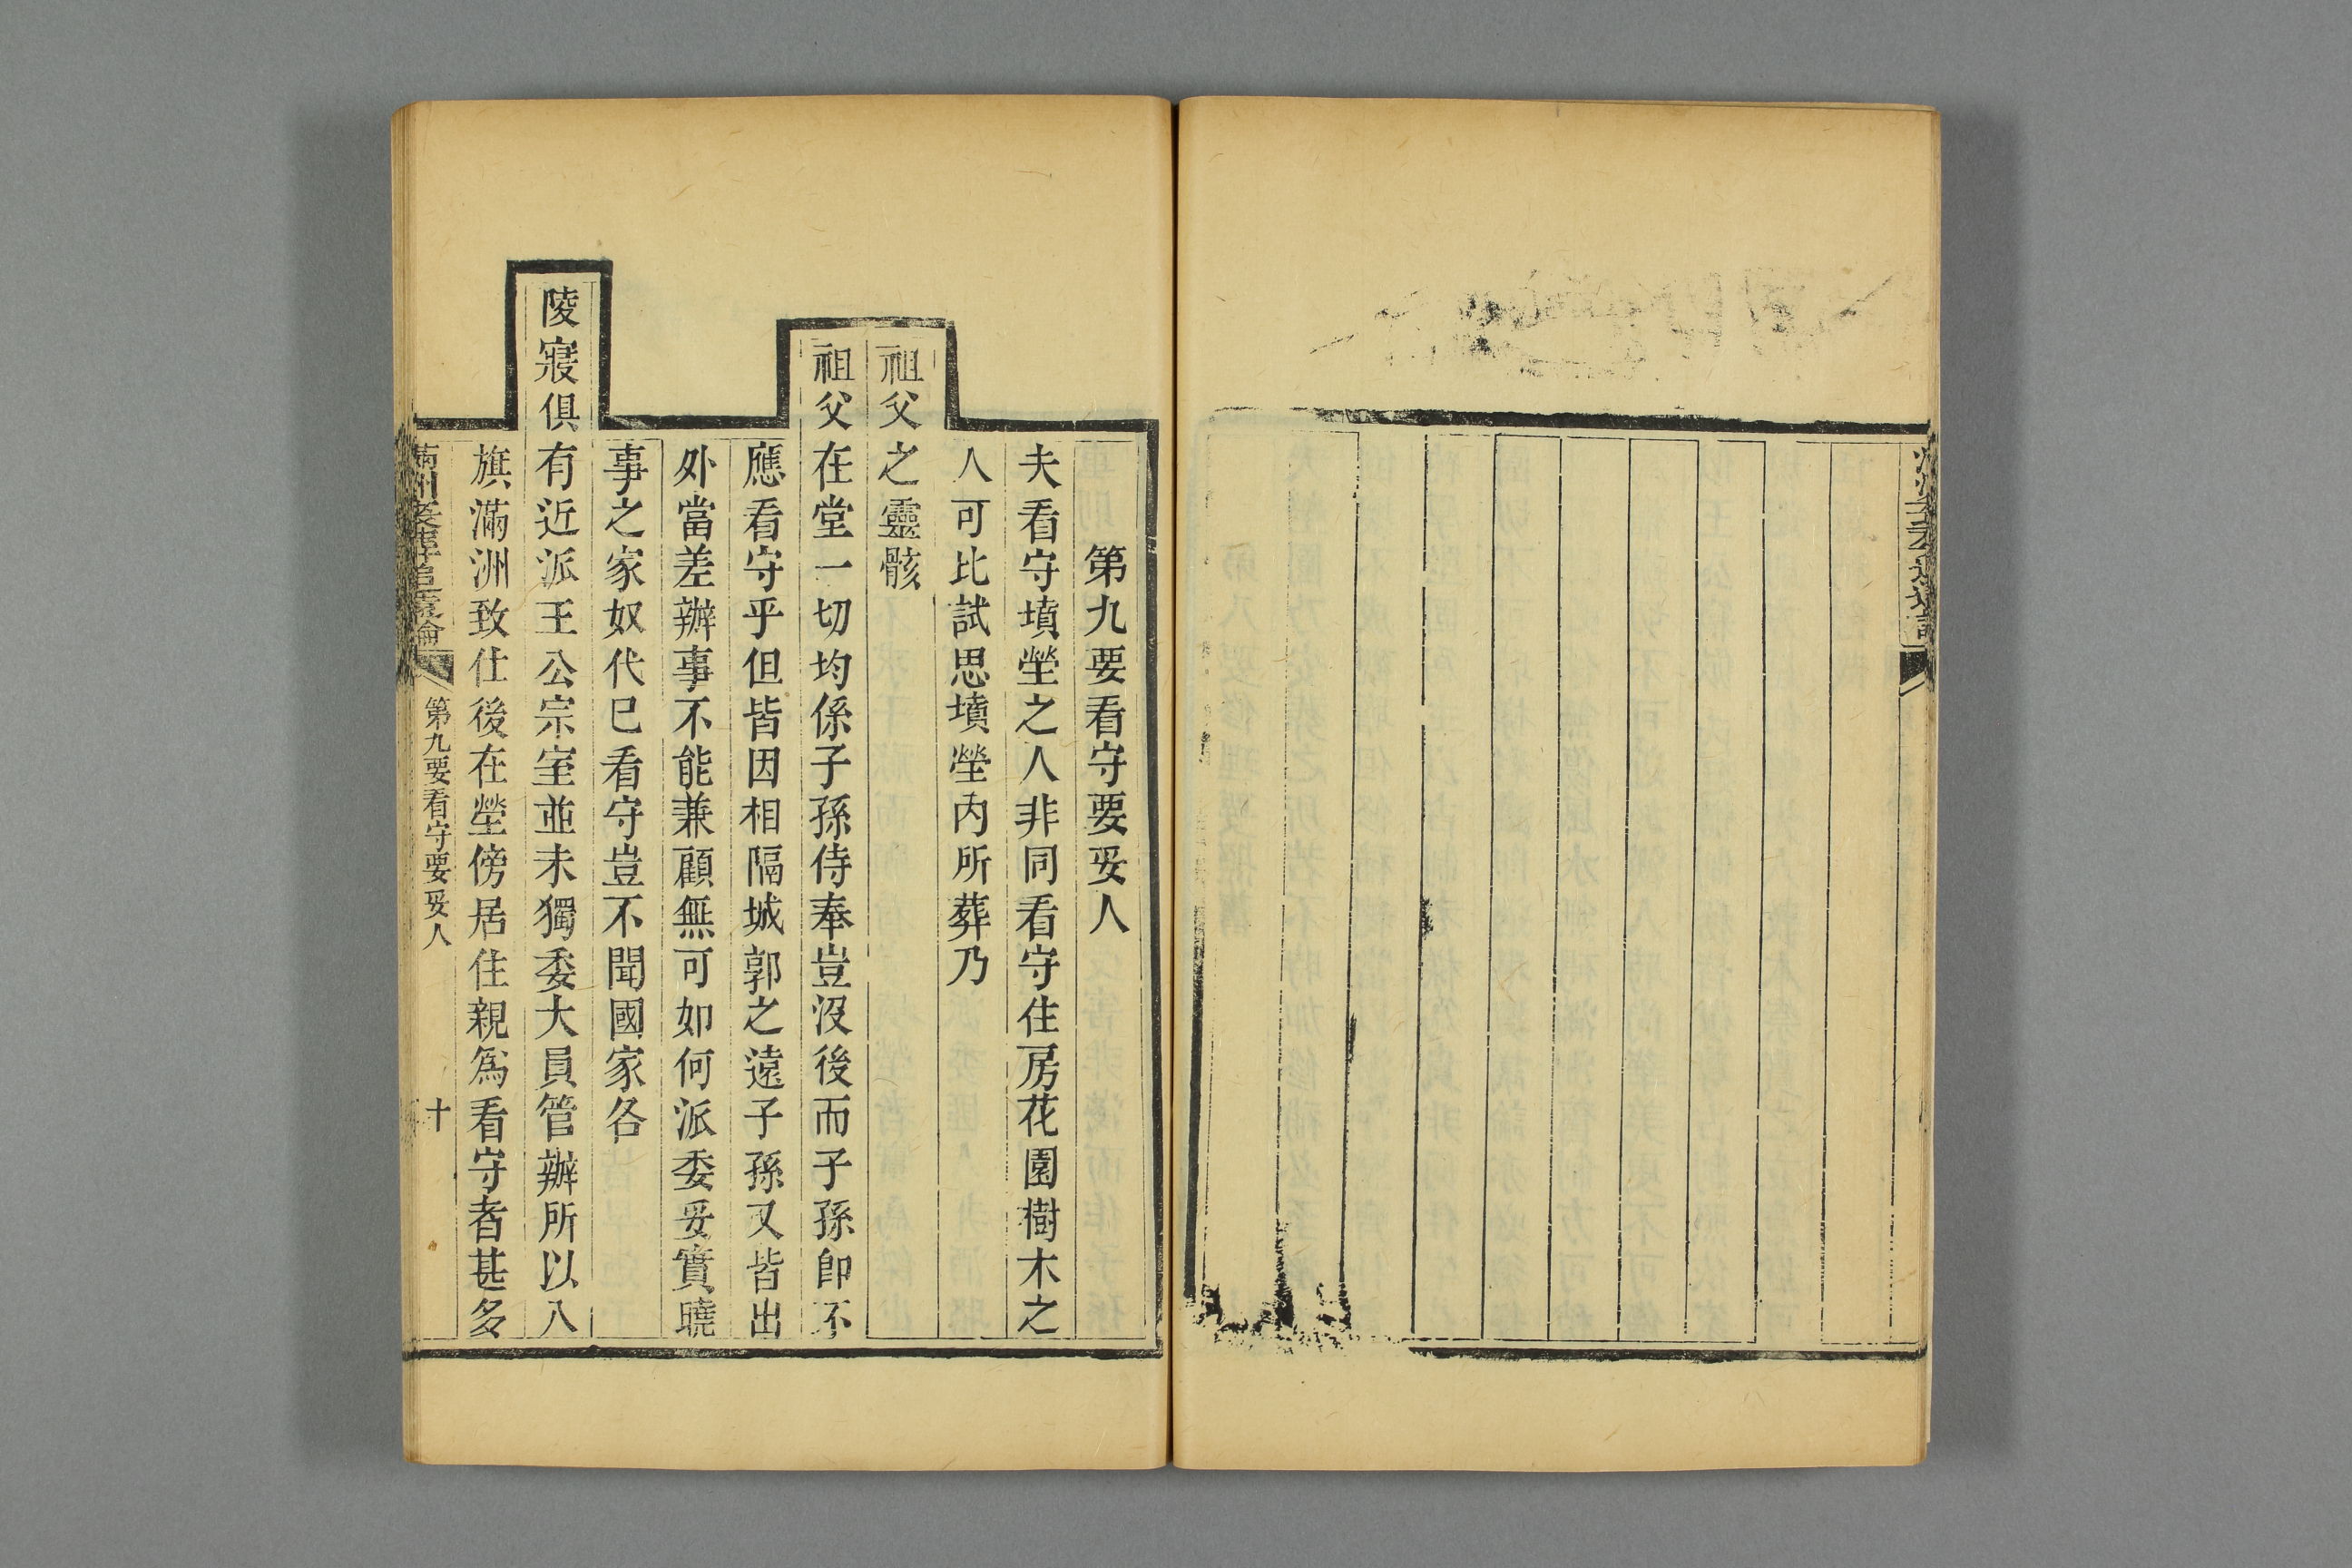 第九要看守要妥人
夫看守墳塋之人非同看守住房花園樹木之
人可比試思墳塋內所葬乃
祖父之靈骸
祖父在堂一切均係子孫侍奉豈沒後而子孫卽不
應看守乎但皆因相隔城郭之遠子孫又皆出
外當差辦事不能兼顧無可如何派委妥實曉
事之家奴代已看守豈不聞國家各
陵寢俱有近派王公宗室並未獨委大員管辦所以八
旗滿洲致仕後在塋傍居住親爲看守者甚多
第九要看守要妥人
十